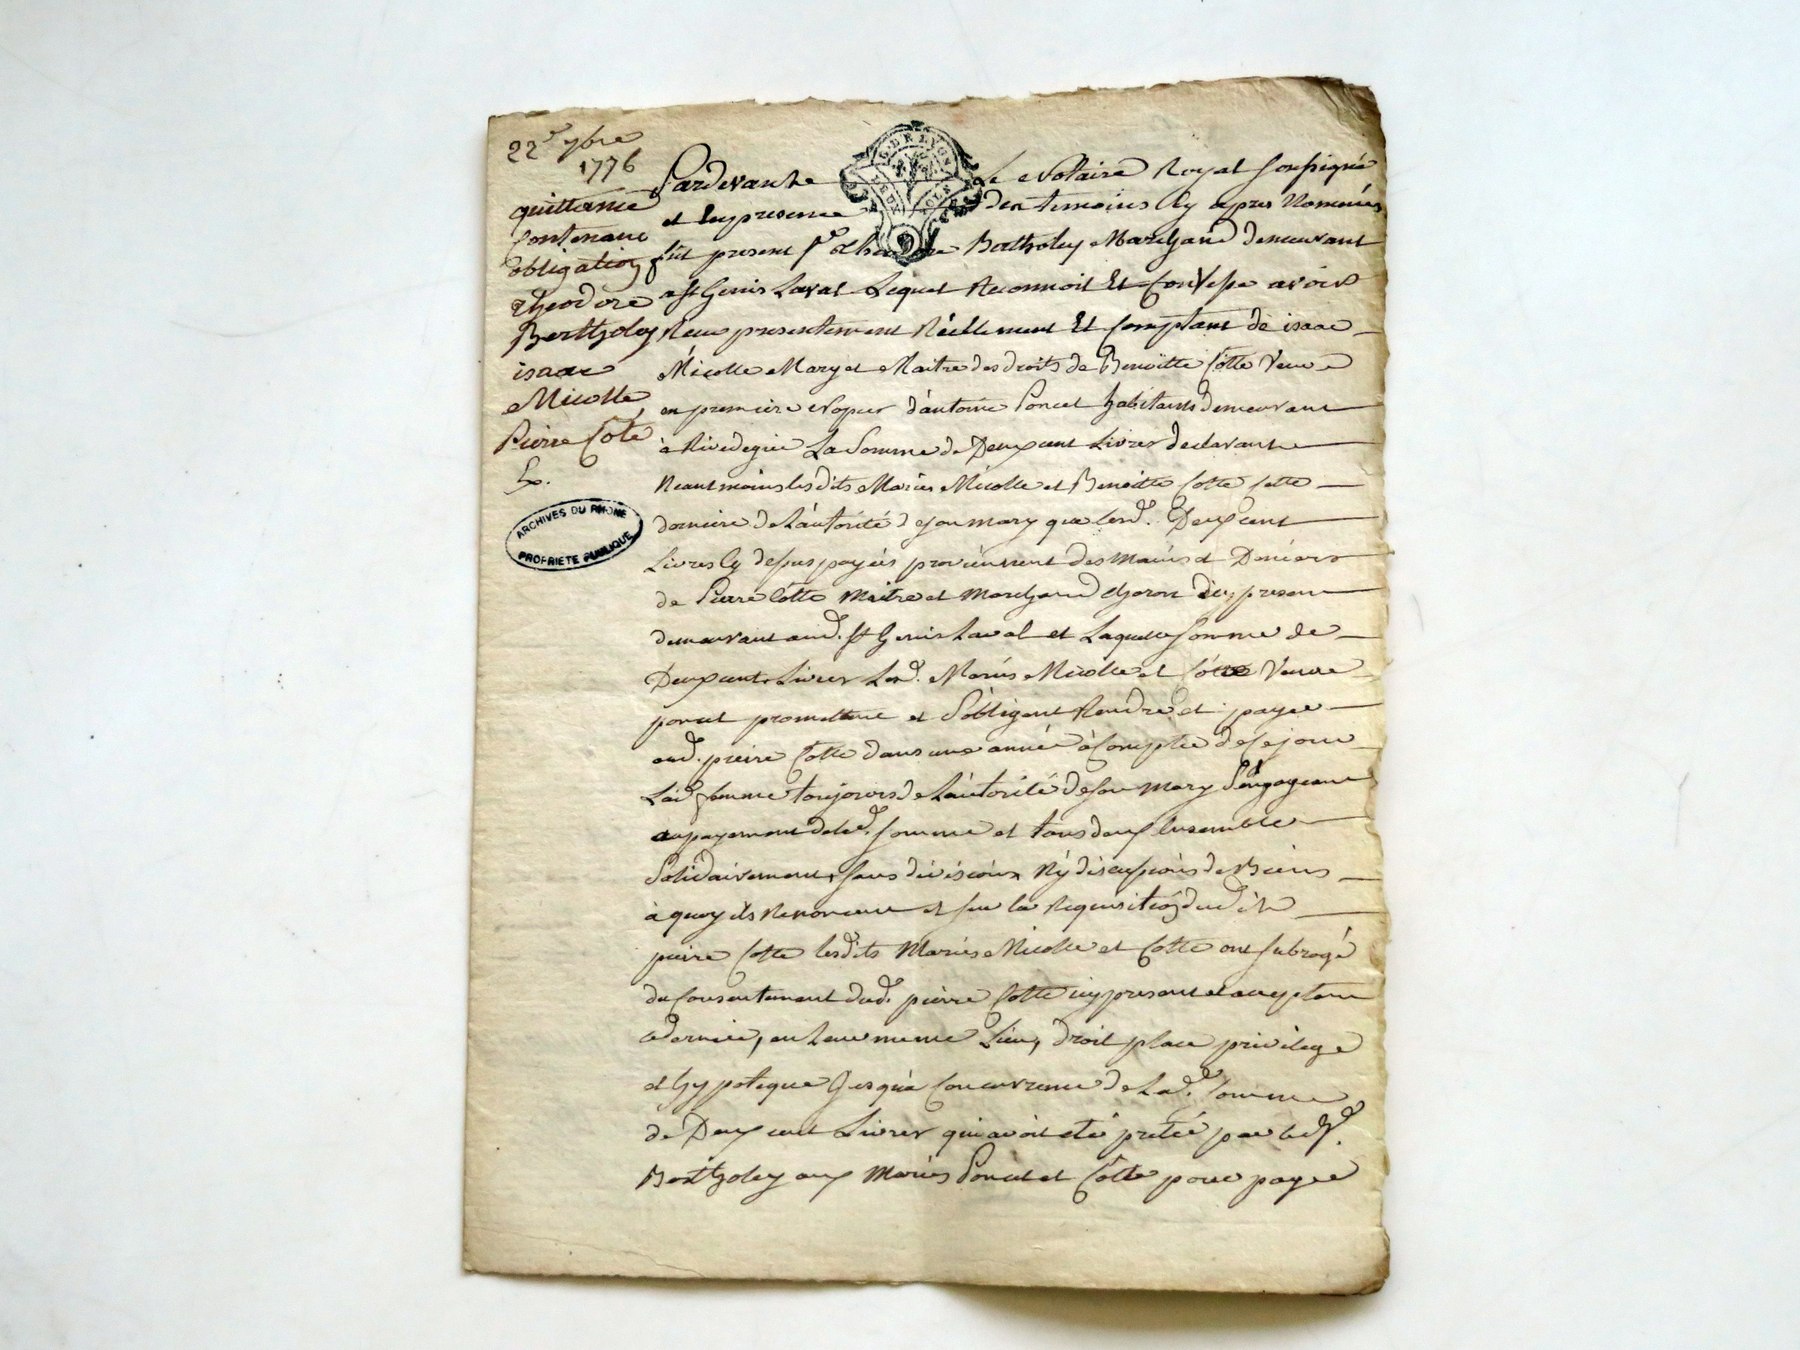 22e 7bre
1776
quittance
Contenant
obligation
Theodore
Bertholey
isaac
Micolle
Pierre Cote
Ex.
ARCHIVES DU RHONE
PROPRIETE PUBLIQUE
G. DE LYON
Pardevant Le Notaire Royal soussigné
et En presence des temoins Cy apres Nommés
fut present Sr Theodore Bertholey Marchand demeurant
a St Genis Laval Lequel Reconnoit Et Confesse avoir
Receu presentement Réellement Et Comptant de isaac
Micolle Mary et Maitre des droits de Benoitte Cotte Veuve
en premiere Nopces d'antoine Poncet habitants demeurant
à Rivedegier La Somme de Deux cent Livres declarant
Neantmoins lesdits Mariés Micolle et Benoitte Cotte cette
derniere de L'autorité de son mary que lesd. Deux cent
Livres Cy dessus payées proviennent des mains et Deniers
de Pierre Cotte Maitre et Marchand Charon icy present
demeurant aud. St Genis Laval et Laquelle somme de
Deux cent Livres Lesd. Mariés Micolle et Cotte Veuve
poncet promettent et S'obligent Rendre et payer
aud. pierre Cotte dans une année à Compter de Ce jour
Lad. femme toujours de L'autorité de son mary S'engageant
au payement de lad. somme et tous deux Ensemble
Solidairement sans division Ny discussion de Biens
à quoy ils Renoncent et sur la Requisition dudit
pierre Cotte lesdits Mariés Micolle et Cotte ont subrogé
du Consentement dud. pierre Cotte icy present et acceptant
ce dernier, en Leur meme Lieu, droit place privilege
et hypoteque Jusqu'a Concurrence de Lad. somme
de Deux cent Livres qui avoit eté pretée par led. Sr.
Bertholey aux Mariés Poncet et Cotte pour payer